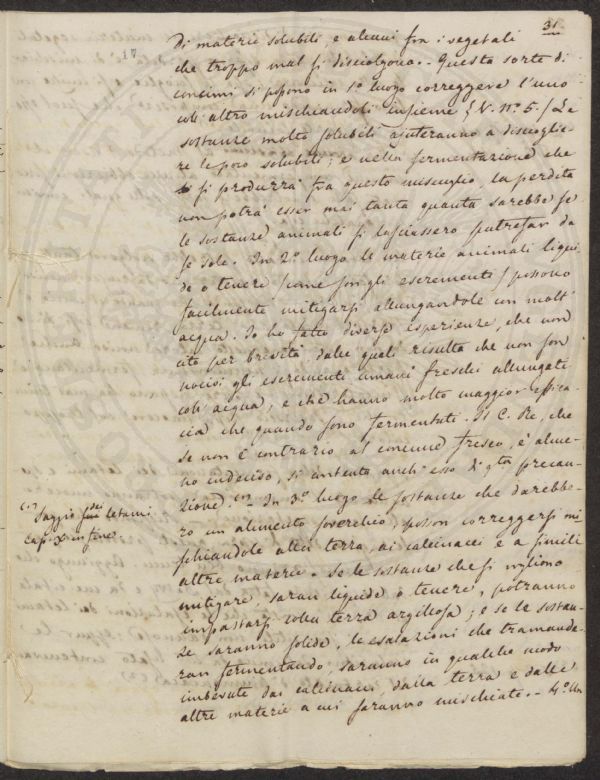 31.
17
di materie solubili, e alcuni fra i vegetali
che troppo mal si disciolgono. - Questa sorte di
concimi si possono in 1.º luogo correggere l'uno
coll'altro mischiandoli insieme (V. nº 5.) Le
sostanze molto solubili ajuteranno a discioglie-
re le poco solubili; e nella fermentazione che
si produrrà fra questo miscuglio, la perdita
non potrà esser mai tanta quanta sarebbe se
le sostanze animali si lasciassero putrefar da
se sole. In 2º luogo le materie animali liqui
de o tenere (come son gli escrementi) possono
facilmente mitigarsi allungandole con molt'
acqua. Io ho fatto diverse esperienze, che non
cito per brevità, dalle quali risulta che non son
nocivi gli escrementi umani freschi allungati
coll'acqua, e che hanno molto maggior effica-
cia che quando sono fermentati. Il C. Re, che
se non è contrario al concime fresco, è alme-
no indeciso, si contenta anch'esso di qta precau-
zione. (1) - In 3º luogo le sostanze che darebbe-
ro un alimento soverchio, posson correggersi mi
schiandole alla terra, ai calcinacci e a simili
altre materie. Se le sostanze che si vogliono
mitigare saran liquide o tenere, potranno
impastarsi colla terra argillosa; e se le sostan-
ze saranno solide, le esalazioni che tramande-
ran fermentando, saranno in qualche modo
imbevute dai calcinacci, dalla terra e dalle
altre materie a cui saranno mischiate. - 4º Un
(1) Saggio sui dei letami
cap. X in fine.